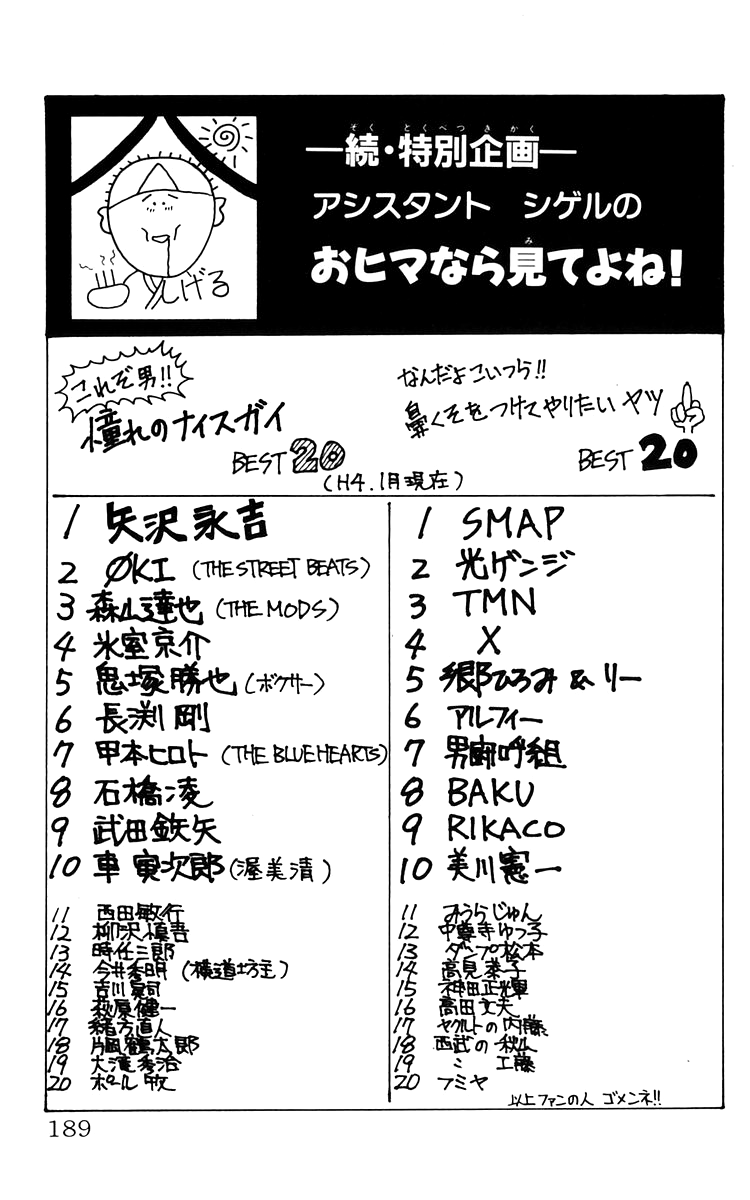 続・特別企画
アシスタント シゲルの
おヒマなら見てよね!
しげる
これぞ男!!
憧れのナイスガイ
BEST 20
なんだよこいつら!!
鼻くそをつけてやりたいヤツ
BEST 20
(H4.1月現在)
1 矢沢永吉
2 ØKI (THE STREET BEATS)
3 森山達也 (THE MODS)
4 氷室京介
5 鬼塚勝也 (ボクサー)
6 長渕剛
7 甲本ヒロト (THE BLUE HEARTS)
8 石橋凌
9 武田鉄矢
10 車寅次郎 (渥美清)
11 西田敏行
12 柳沢慎吾
13 時任三郎
14 今井秀明 (横道坊主)
15 吉川晃司
16 萩原健一
17 緒方直人
18 片岡鶴太郎
19 大滝秀治
20 ポール牧
1 SMAP
2 光ゲンジ
3 TMN
4 X
5 郷ひろみ & リー
6 アルフィー
7 男闘呼組
8 BAKU
9 RIKACO
10 美川憲一
11 みうらじゅん
12 中尊寺ゆつ子
13 ダンプ松本
14 高見恭子
15 神田正輝
16 高田文夫
17 ヤクルトの内藤
18 西武の秋山
19 〃 工藤
20 フミヤ
以上ファンの人 ゴメンネ!!
189